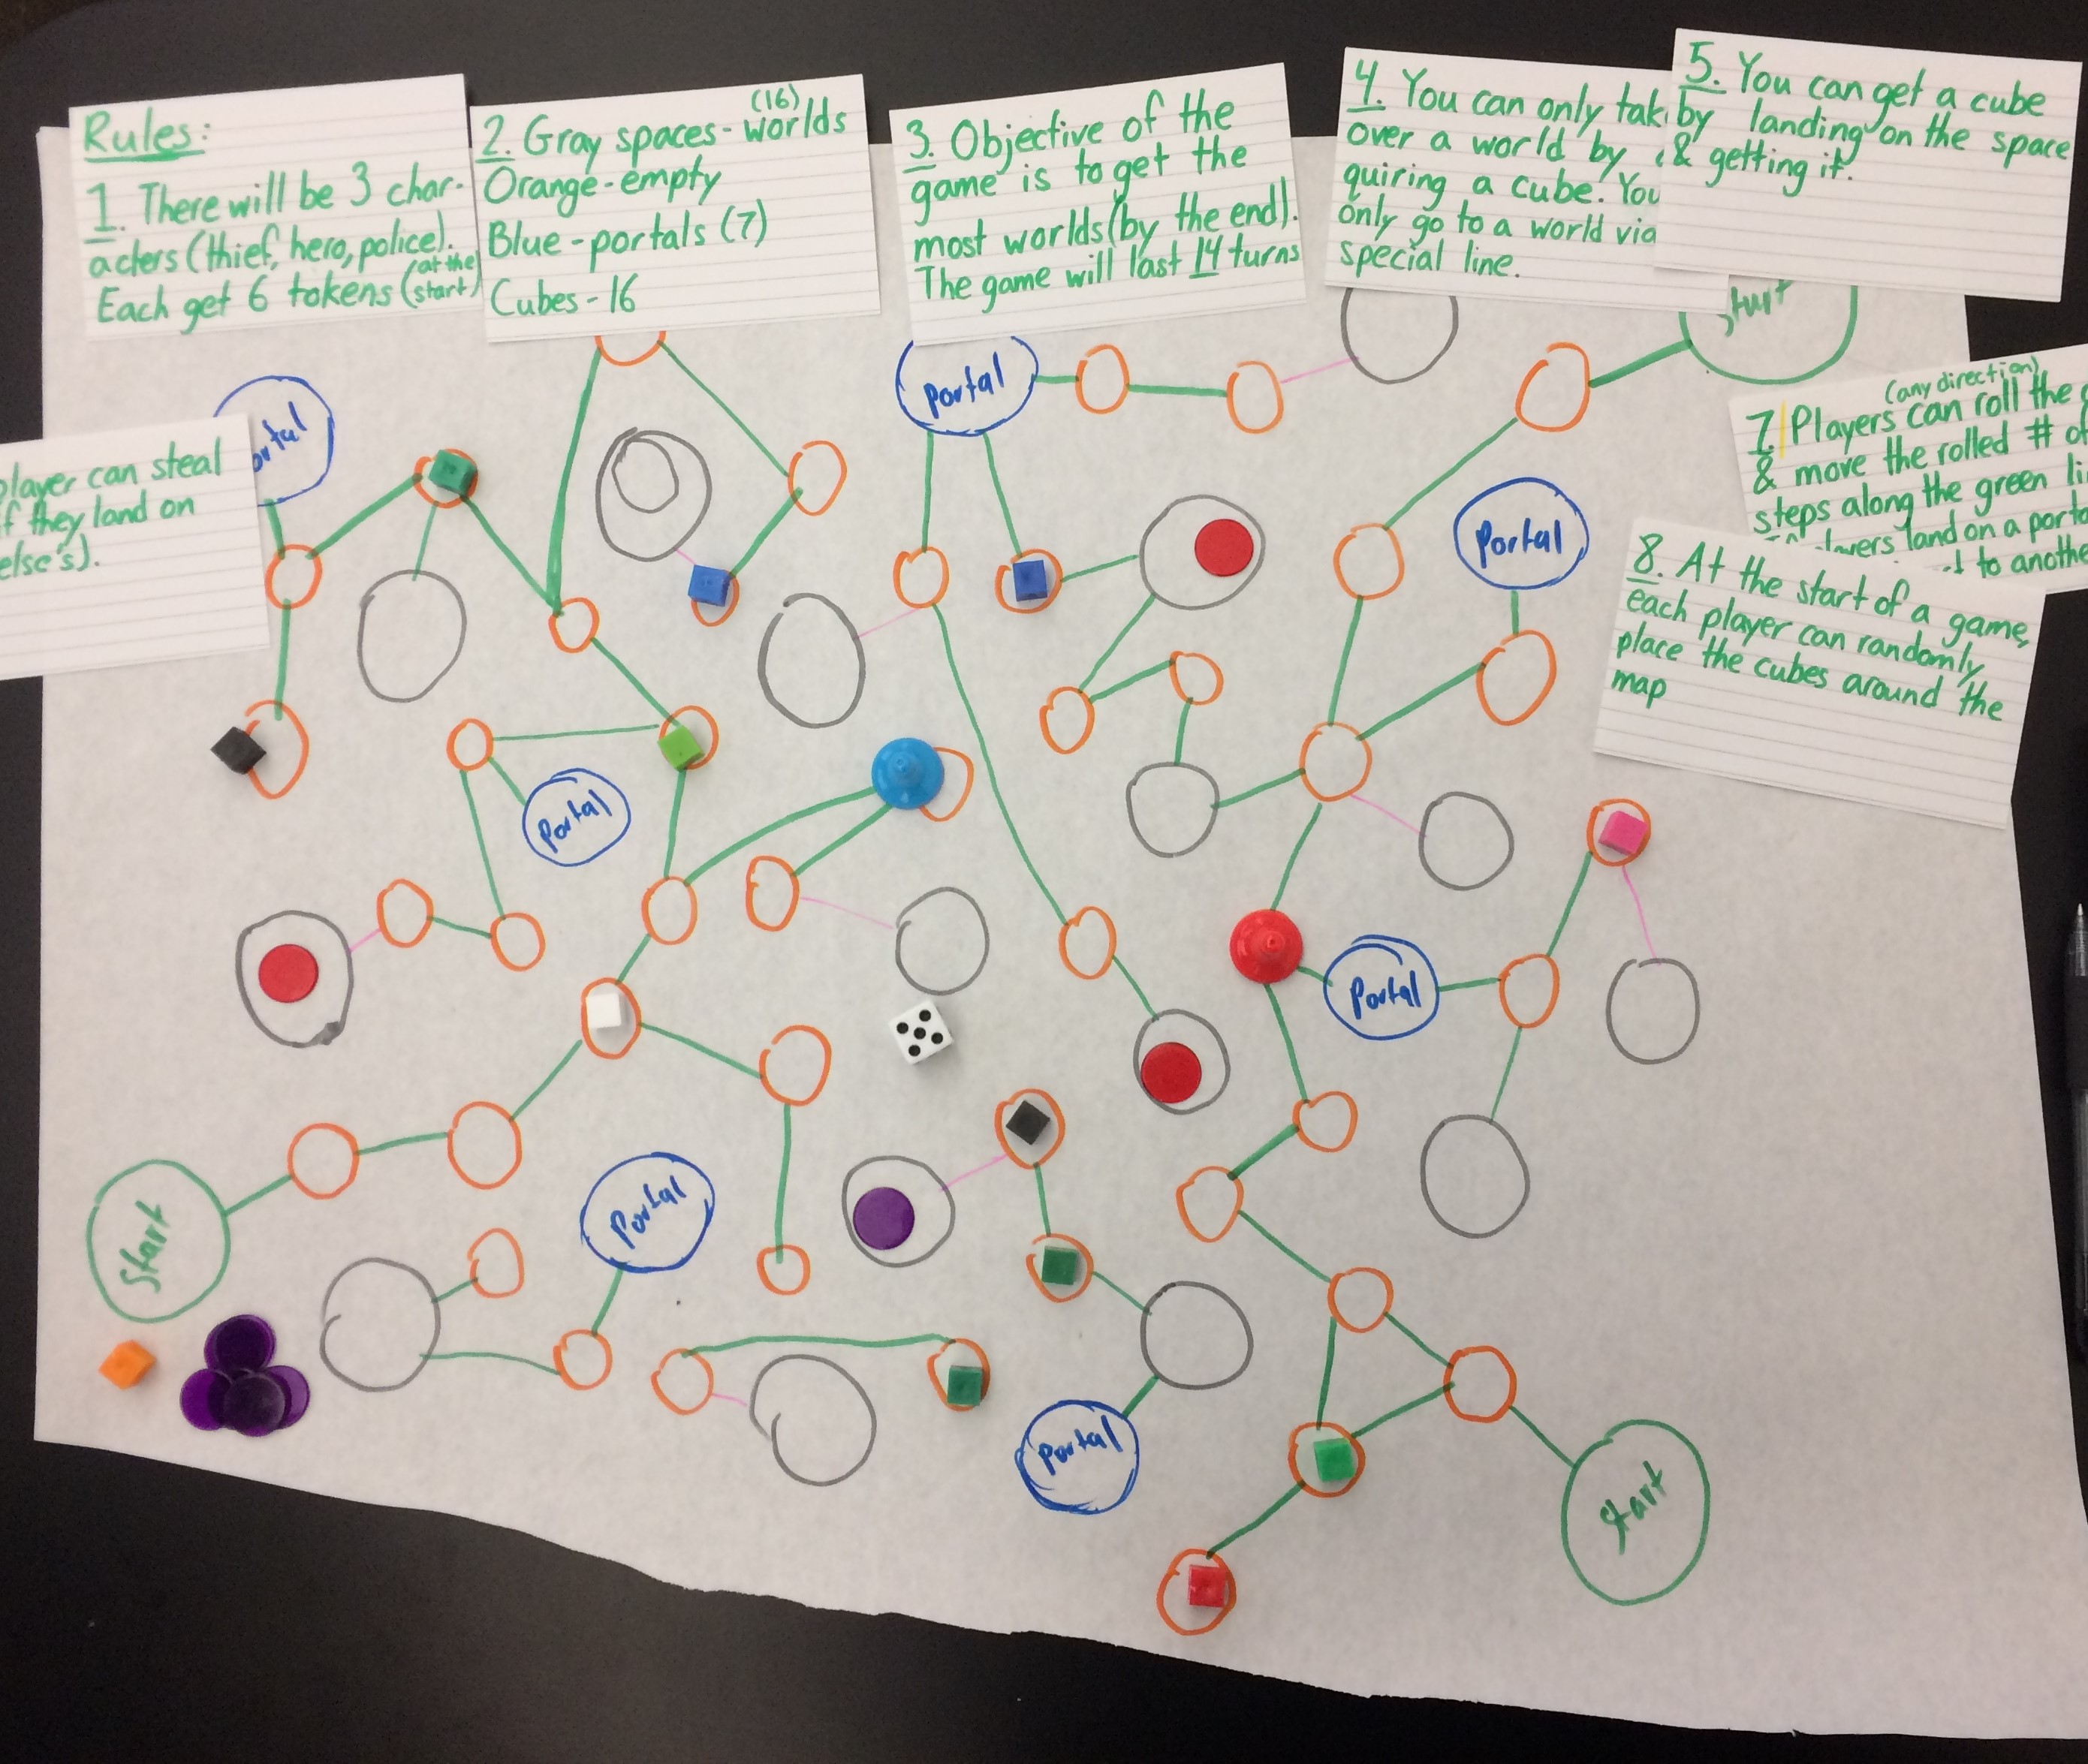 Rules:
1. There will be 3 char-
acters (thief, hero, police).
Each get 6 tokens (at the start)
2. Gray spaces - worlds (16)
Orange - empty
Blue - portals (7)
Cubes - 16
3. Objective of the
game is to get the
most worlds (by the end).
The game will last 14 turns
4. You can only tak
over a world by
quiring a cube. You
only go to a world via
special line.
5. You can get a cube
by landing on the space
& getting it.
player can steal
if they land on
else's).
7. Players can roll the
(any direction)
& move the rolled # of
steps along the green
land on a
to
8. At the start of a game,
each player can randomly
place the cubes around the
map
Portal
Portal
Portal
Portal
Portal
Portal
Start
Start